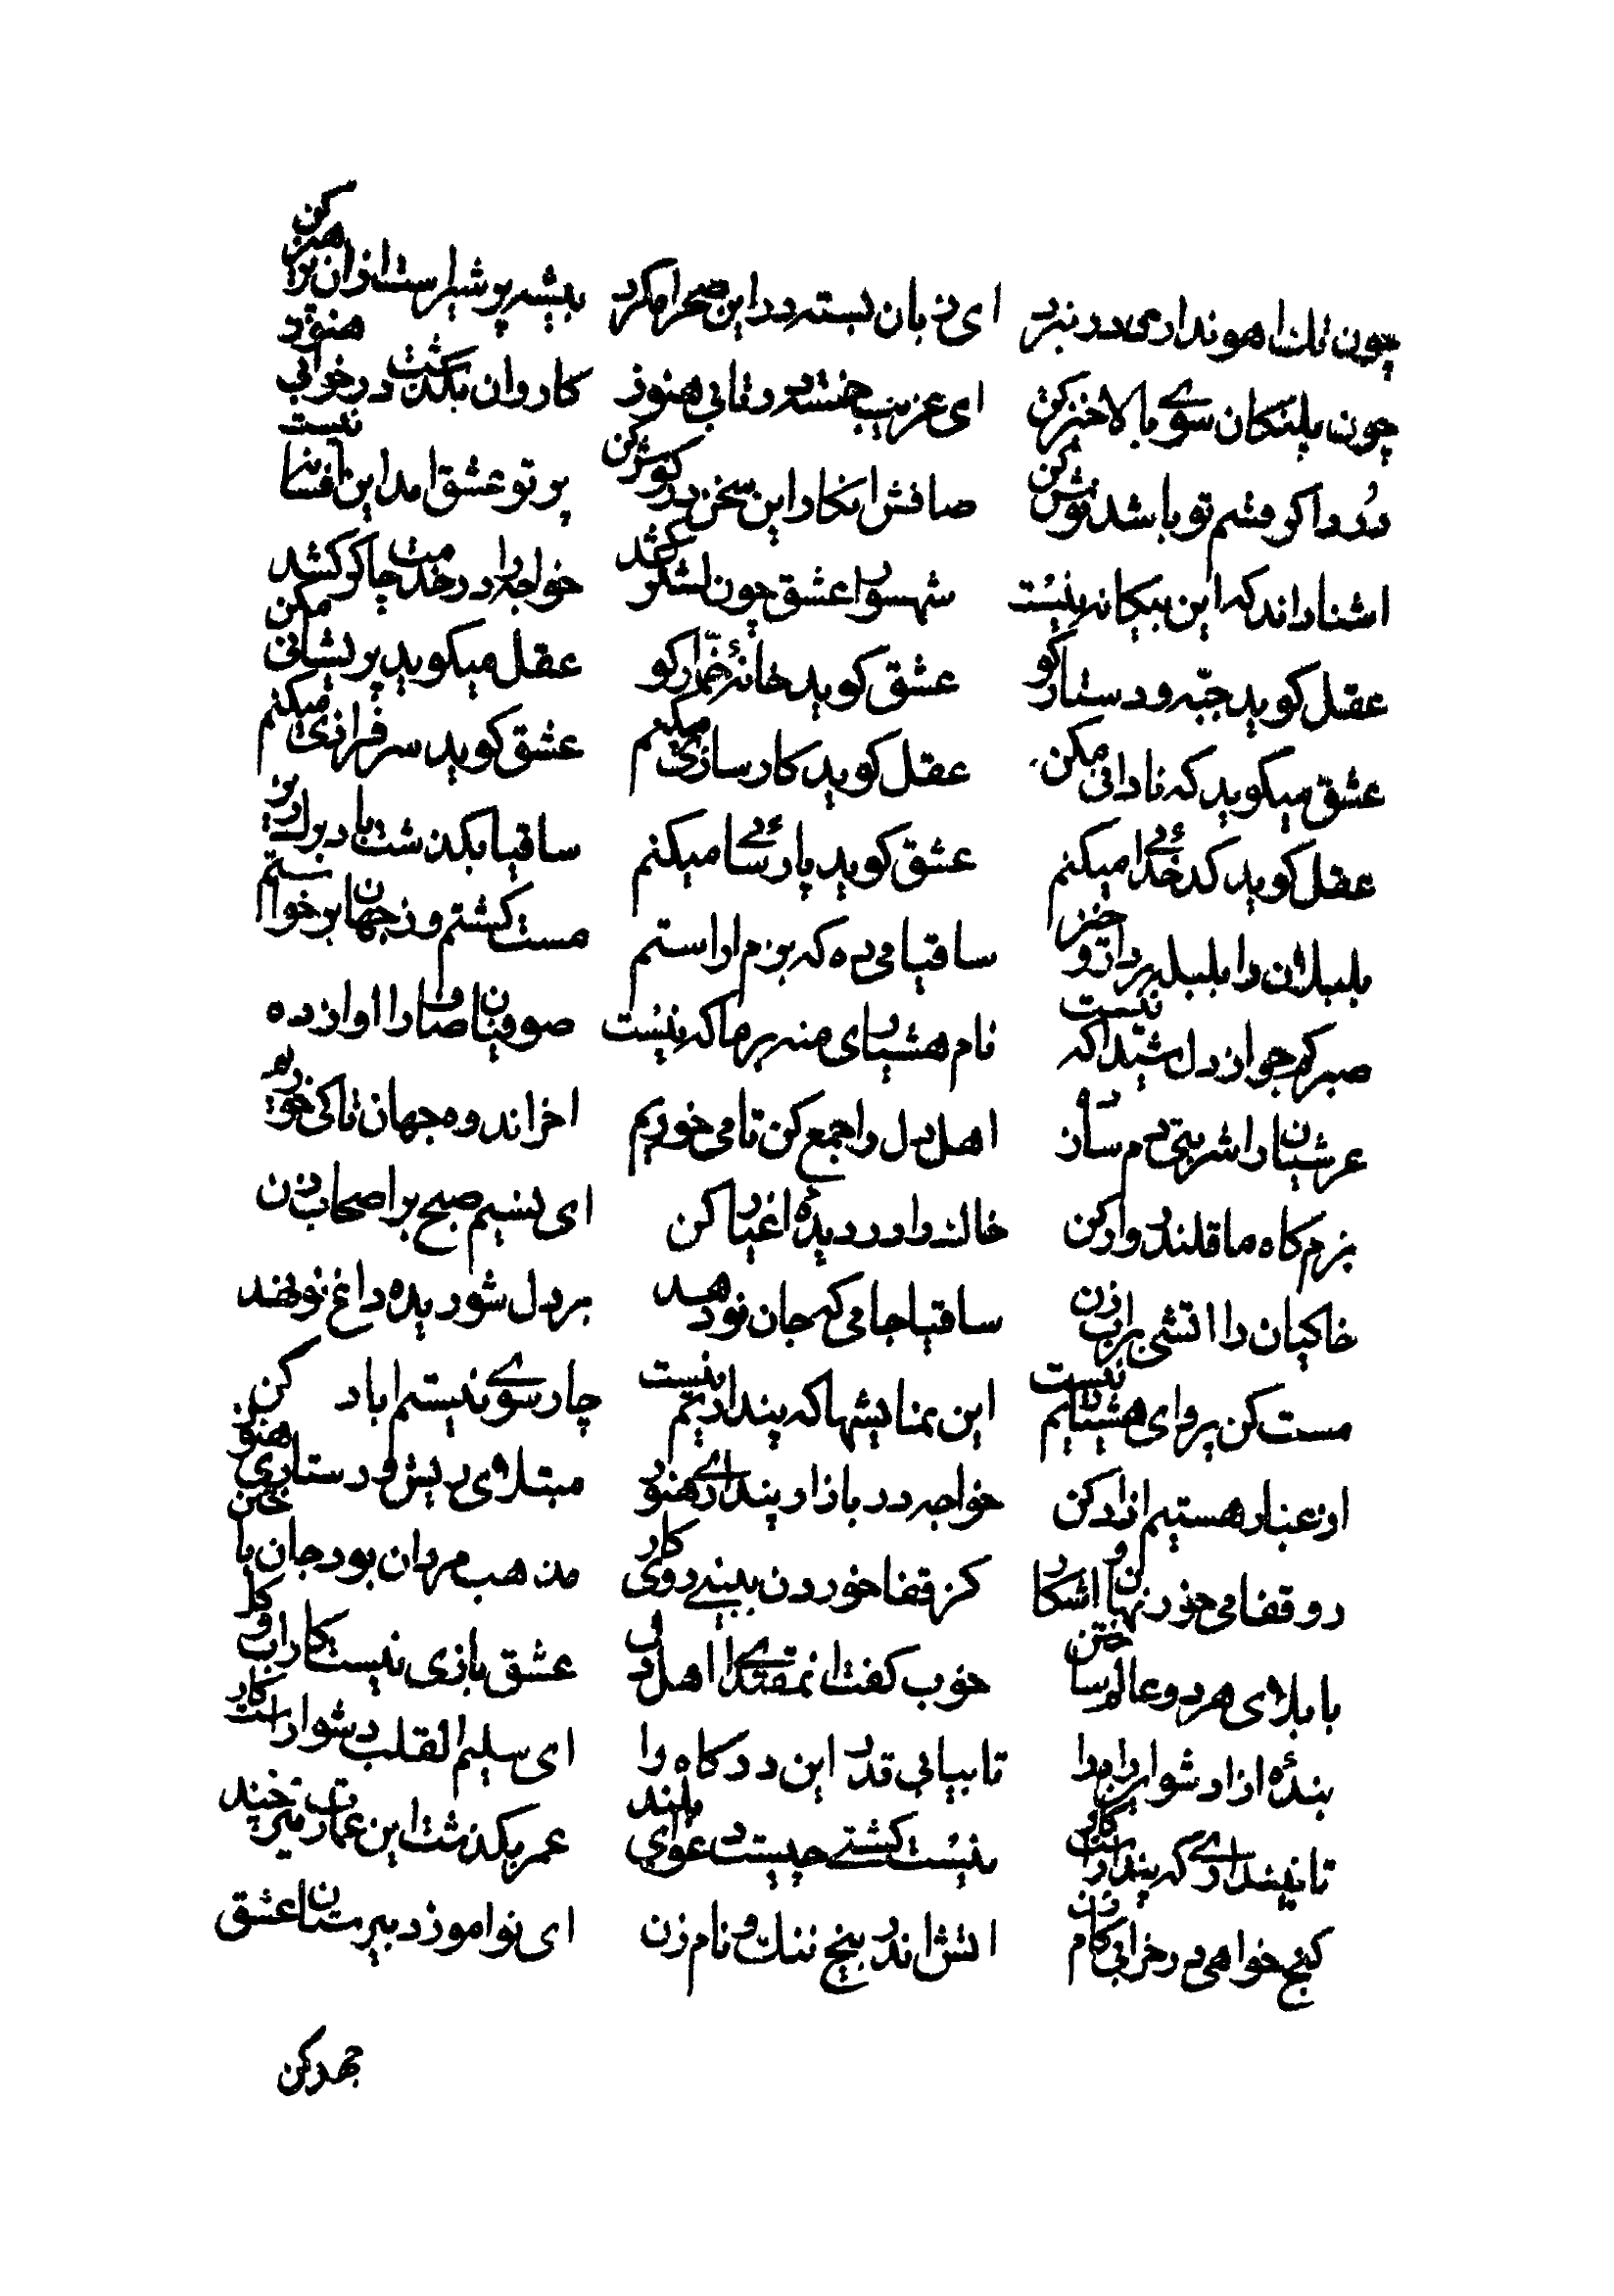 چون تك اهو نداری در نبرد    ای زبان بسته در این صحرا مکرد    بیشه پر شیر است ازان برا هنر کن
چون پلنکان سوی بالا خیز کن    ای عزیب خفته در قابی هنوز    کاروان بکذشت در خوابی هنوز
دُرد اکر قسم تو باشد نوش کن    صافش انکار این سخن در کوش کن    پرتو عشق امد این افسانه نیست
اشنا داند که این بیکانه نیست    شهسوار عشق چون لشکر کشد    خواجه را در خدمت چاکر کشد
عقل کوید جبّه و دستار کو    عشق کوید خانهٔ خمّار کو    عقل میکوید پریشانی مکن
عشق میکوید که نادانی مکن    عقل کوید کارسازی میکنم    عشق کوید سرفرازی میکنم
عقل کوید کدخدائی میکنم    عشق کوید پارسائی میکنم    ساقیا بکذشت باد
بلبلان را بلبله بردار و خیز    ساقیا می ده که بزم اراستم    مست کشتم وز جهان برخواستم
صبر کم جو از دل شیدا که نیست    نام هشیاری منه بر ما که نیست    صوفیان صاف را اواز ده
عرشیان را شربتی دمساز ده    اهل دل را جمع کن تا می خوریم    اخر اندوه جهان تا کی خوریم
بزم کاه ما قلندروار کن    خاك در دیدهٔ اغیار کن    ای نسیم صبح بر اصحاب زن
خاکیان را اتشی بر اب زن    ساقیا جامی که جان نو دهد    بر دل شوریده داغ نو نهد
مست کن پروای هشیاریم نیست    این نمایشها که پنداریم نیست    چارسوی نیستم اباد کن
از غبار هستیم ازاد کن    خواجه در بازار پنداری هنوز    مبتلای ریش و دستاری هنوز
رو قفا می خور نهان و اشکار    کز قفا خوردن ببینی روی کار    مذهب مردان بود جان باختن
با بلای هر دو عالم ساختن    خوب کفت ان مقتدای اهل دل    عشق بازی نیست کار اب و کل
بندهٔ ازاد شو این راه را    تا بیابی قدر این درکاه را    ای سلیم القلب دشوار است کار
تا نپنداری که پندار است کار    نیست کشتی چیست دعوای بلند    عمر بکذشت این عمارت تا بچند
کنج خواهی در خرابی کام زن    اتش اندر بیخ ننك و نام زن    ای نواموز دبیرستان عشق
جهد کن